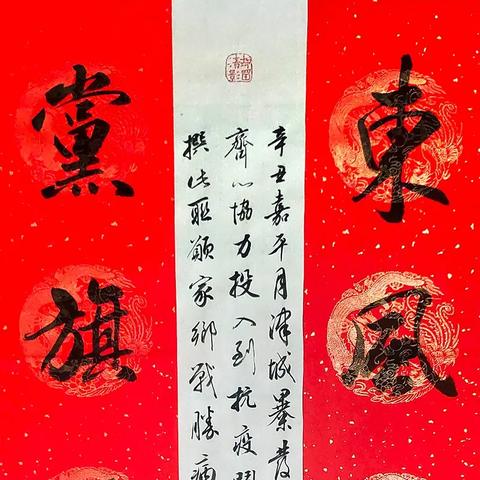 東風
辛丑嘉平月津城暴發
齊心協力投入到抗疫
撰此聯願家鄉戰勝病
黨旗